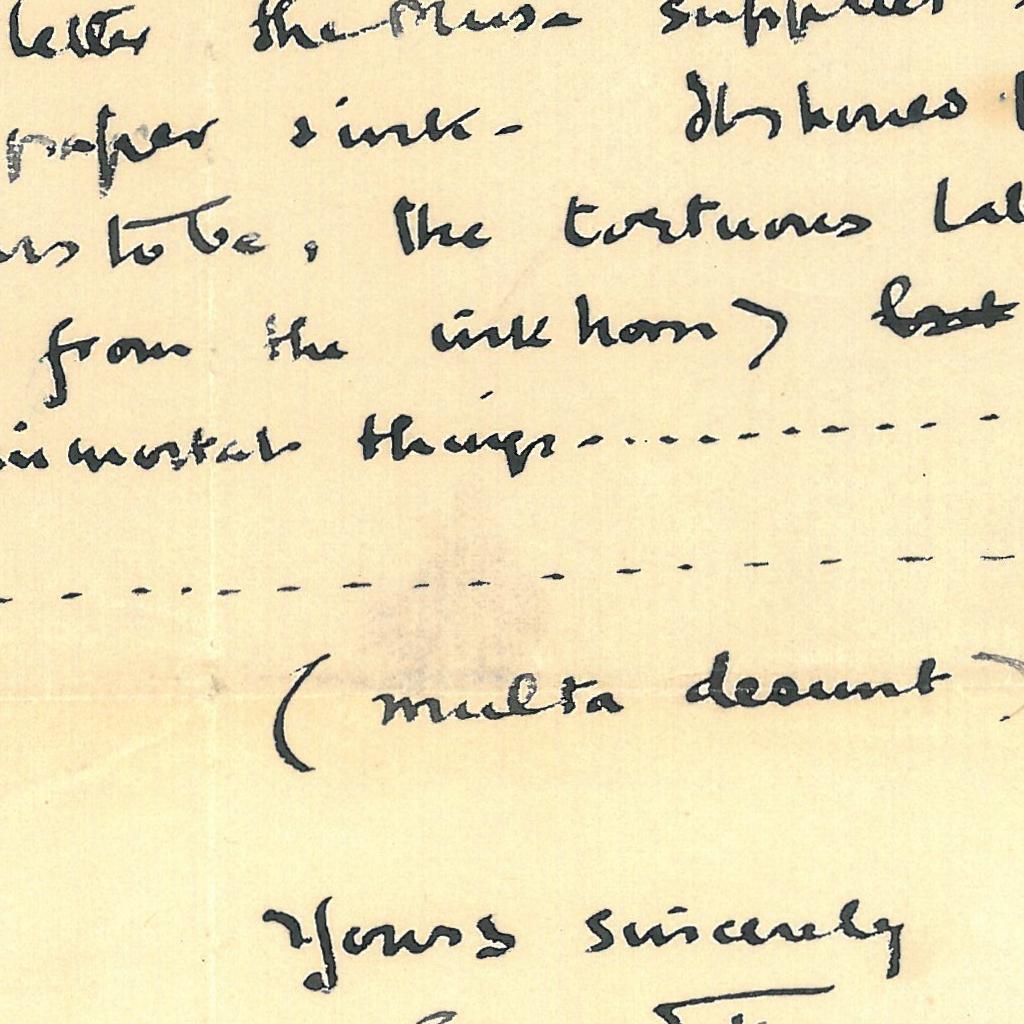 letter the Muse supplies
paper s ink-
to be, the tortuous
from the ink horn)
immortal things - - - - - - - - -
- - - - - - - - - - - - -
(multa desunt)
Yours sincerely